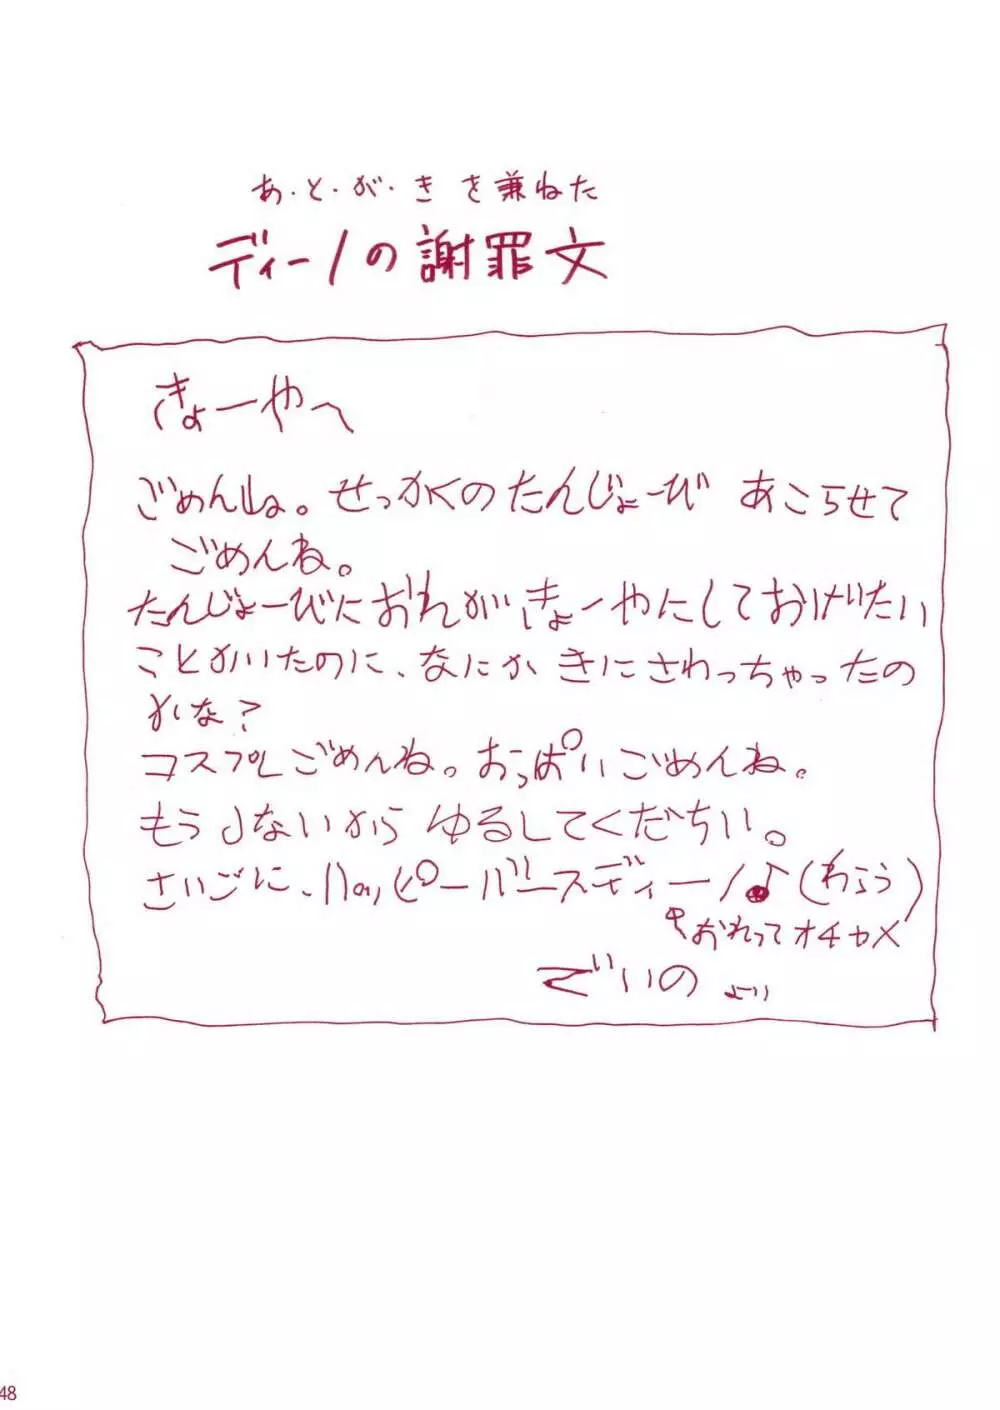 あ・と・が・き を兼ねた
ディーノの謝罪文
きょーやへ
ごめんね。せっかくのたんじょーび あこらせて
ごめんね。
たんじょーびにおれがきょーやにしておげたい
ことかいたのに、なにか きにさわっちゃったの
かな?
コスプレごめんね。おっぱいごめんね。
もうしないから ゆるしてくだちい。
さいごに、ハッピーバースディーノ♪(わらう)
おれってオチャメ
でぃーの より
48